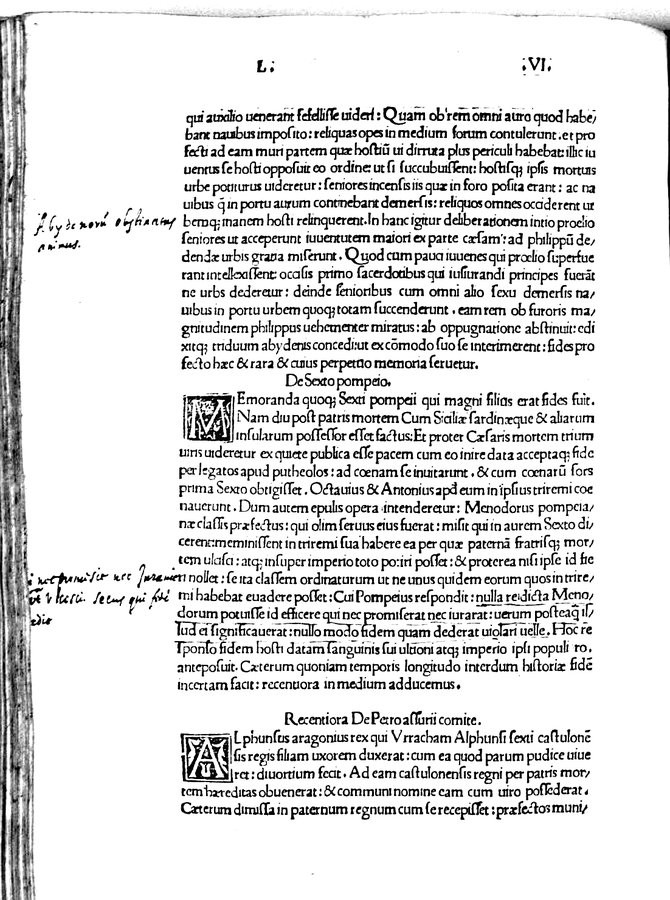 L. .VI.
qui auxilio uenerant fefellisse uideri: Quam ob rem omni auro quod habe/
bant nauibus imposito: reliquas opes in medium forum contulerunt. et pro
fecti ad eam muri partem quæ hostiũ ui dirruta plus periculi habebat: illic iu
uentus se hosti opposuit eo ordine: ut si succubuissent: hostisq; ipsis mortuis
urbe potiturus uideretur: seniores incensis iis quæ in foro posita erant: ac na
uibus q̃ in portu aurum continebant demersis: reliquos omnes occiderent ur
bemq; inanem hosti relinquerent. In hanc igitur deliberationem intio prœlio
seniores ut acceperunt iuuentutem maiori ex parte cæsam: ad philippũ de/
dendæ urbis gratia miserunt. Quod cum pauci iuuenes qui prœlio superfue
rant intellexissent: occisis primo sacerdotibus qui iusiurandi principes fuerãt
ne urbs dederetur: deinde senioribus cum omni alio sexu demersis na/
uibus in portu urbem quoq; totam succenderunt. eam rem ob furoris ma/
gnitudinem philippus uehementer miratus: ab oppugnatione abstinuit: edi
xitq; triduum abydenis concedi: ut ex cõmodo suo se interimerent: fides pro
fecto hæc & rara & cuius perpetuo memoria seruetur.
Abydenorũ obstinatus
animus.
De Sexto pompeio.
MEmoranda quoq; Sexti pompeii qui magni filius erat fides fuit.
Nam diu post patris mortem Cum Siciliæ sardinæque & aliarum
insularum possessor esset factus: Et propter Cæsaris mortem trium
uiris uideretur ex quiete publica esse pacem cum eo inire data acceptaq; fide
per legatos apud putheolos: ad cœnam se inuitarunt. & cum cœnarũ sors
prima Sexto obtigisset. Octauius & Antonius apd eum in ipsius triremi coe
nauerunt. Dum autem epulis opera intenderetur: Menodorus pompeia/
næ classis præfectus: qui olim seruus eius fuerat: misit qui in aurem Sexto di/
cerent: meminissent in triremi sua habere ea per quæ paternã fratrisq; mor/
tem ulcisci: atq; insuper imperio toto potiri posset: & proterea nisi ipse id fie
ri nollet: se ita classem ordinaturum ut ne unus quidem eorum quos in trire/
mi habebat euadere posset: Cui Pompeius respondit: nulla re idicta Meno/
dorum potuisse id efficere qui nec promiserat nec iurarat: uerum posteaq̃ il/
lud ei significauerat: nullo modo fidem quam dederat uiolari uelle. Hoc re
sponso fidem hosti datam sanguinis sui ultioni atq; imperio ipsi populi ro.
anteposuit. Cæterum quoniam temporis longitudo interdum historiæ fidẽ
incertam facit: recentiora in medium adducemus.
nec promisio nec Juramen
qui fidẽ
Recentiora De Petro assurii comite.
ALphunsus aragonius rex qui Vrracham Alphunsi sexti castulonẽ
sis regis filiam uxorem duxerat: cum ea quod parum pudice uiue
ret: diuortium fecit. Ad eam castulonensis regni per patris mor/
tem hæreditas obuenerat: & communi nomine eam cum uiro possederat.
Cæterum dimissa in paternum regnum cum se recepisset: præfectos muni/